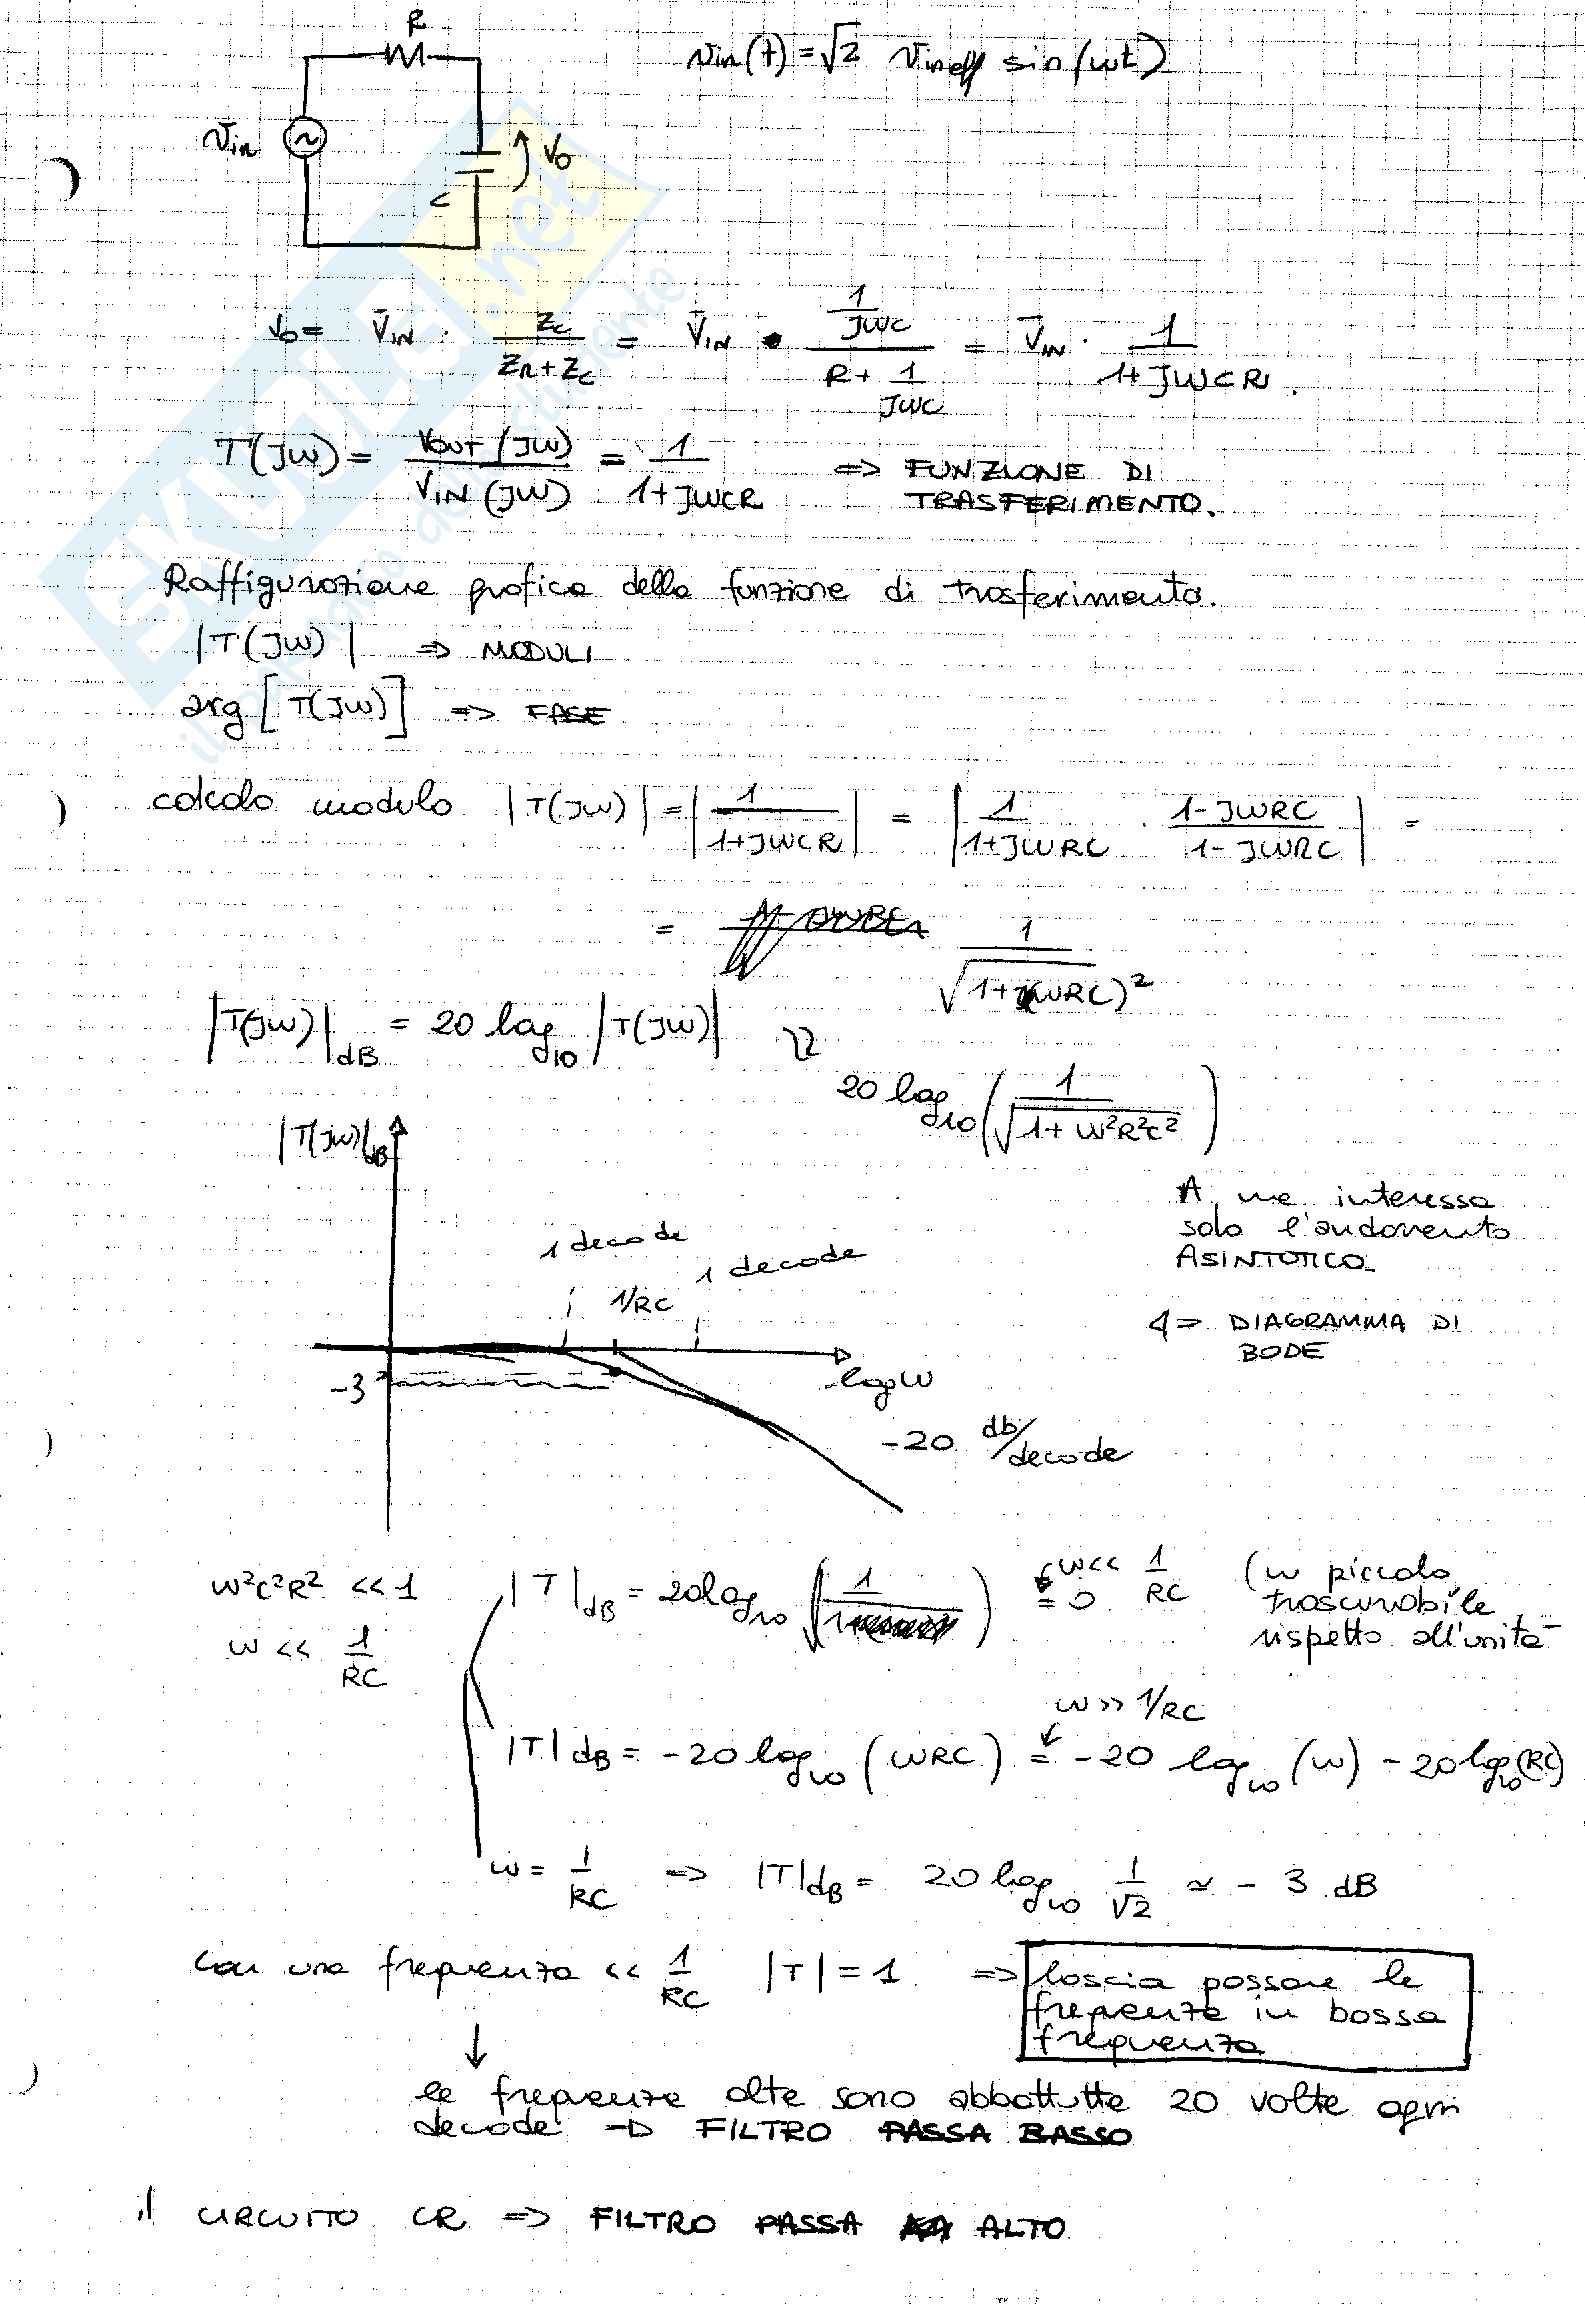 R
vin(t) = √2 Vineff sin(ωt)
Vin
Vo
C
Vo = V̄IN · ZC/(ZR+ZC) = V̄IN · (1/JWC)/(R + 1/JWC) = V̄IN · 1/(1+JWCR).
T(JW) = VOUT(JW)/VIN(JW) = 1/(1+JWCR) => FUNZIONE DI
TRASFERIMENTO.
Raffigurazione grafica della funzione di trasferimento.
|T(JW)| => MODULI
arg[T(JW)] => FASE
calcolo modulo |T(JW)| = |1/(1+JWCR)| = |1/(1+JWRC) · (1-JWRC)/(1-JWRC)| =
= 1/√(1+(WRC)²
|T(JW)|dB = 20 log10 |T(JW)|
20 log10 (1/√(1+W²R²C²))
|T(JW)|dB
A me interessa
solo l'andamento
ASINTOTICO
1 decade
1 decade
1/RC
<= DIAGRAMMA DI
BODE
-3
log W
-20 db/decade
W²C²R² <<1
|T|dB = 20 log10 (√(1/1)) = 0
W<< 1/RC
(W piccolo
trascurabile
rispetto all'unità
W << 1/RC
W >> 1/RC
|T|dB = -20 log10 (WRC) = -20 log10 (W) - 20 log10(RC)
W = 1/RC => |T|dB = 20 log10 1/√2 ≃ -3 dB
Con una frequenza << 1/RC |T| = 1 => lascia passare le
frequenze in bassa
frequenza
↓
le frequenze alte sono abbattutte 20 volte ogni
decade → FILTRO PASSA BASSO
il CIRCUITO CR => FILTRO PASSA ALTO